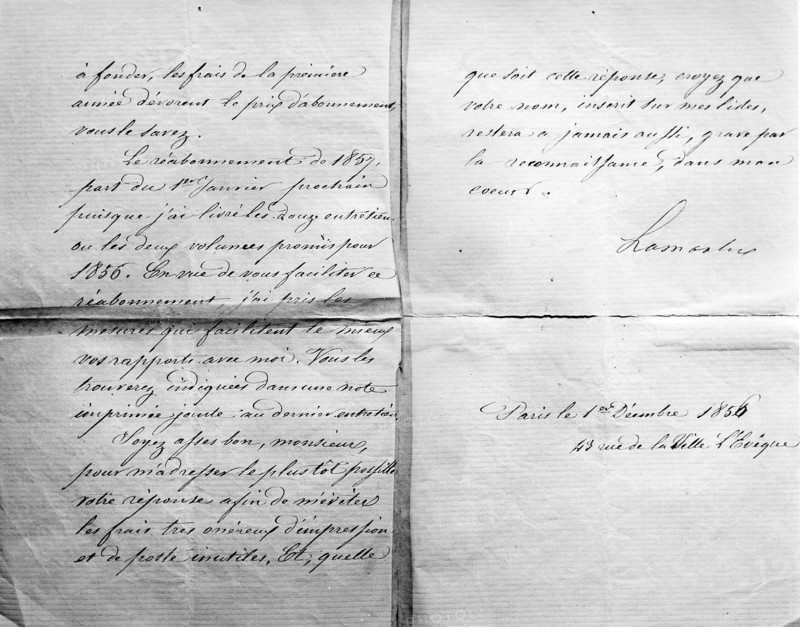 à fonder, les frais de la première
année dévorent le prix d'abonnement,
vous le savez.
Le réabonnement de 1857,
part du 1er Janvier prochain
puisque j'ai livré les douze entretiens
ou les deux volumes promis pour
1856. En vue de vous faciliter ce
réabonnement, j'ai pris les
mesures que facilitent le mieux
vos rapports avec moi. Vous les
trouverez indiquées dans une note
imprimée jointe au dernier entretien.
Soyez asses bon, monsieur,
pour m'adresser le plus tôt possible
votre réponse afin de m'éviter
les frais très onéreux d'impression
et de poste inutiles, Et, quelle
que soit cette réponse, croyez que
votre nom, inscrit sur mes listes,
restera a jamais aussi, gravé par
la reconnaissance, dans mon
coeur.
Lamartine
Paris le 1er Décembre 1856
43 rue de la Ville l'Evêque